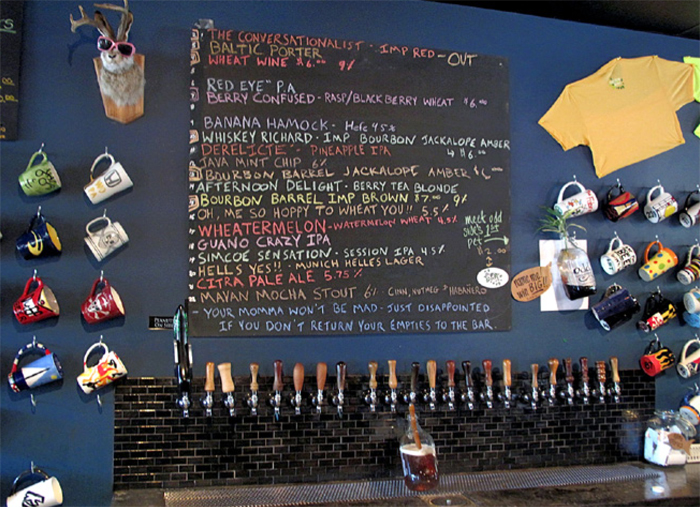 THE CONVERSATIONALIST - IMP RED - OUT
BALTIC PORTER
WHEAT WINE $6.00 9%
RED EYE" P.A
BERRY CONFUSED - RASP/BLACKBERRY WHEAT $6.00
BANANA HAMOCK - Hefe 4.5%
WHISKEY RICHARD - IMP BOURBON JACKALOPE AMBER
DERELICTE" - PINEAPPLE IPA $6.00
JAVA MINT CHIP 6%
BOURBON BARREL JACKALOPE AMBER $6.00
AFTERNOON DELIGHT - BERRY TEA BLONDE
BOURBON BARREL IMP BROWN $7.00 9%
OH, ME SO HOPPY TO WHEAT YOU!! 5.5%
WHEATERMELON - WATERMELON WHEAT 4.5%
GUANO CRAZY IPA
SIMCOE SENSATION - SESSION IPA 4.5%
HELLS YES!! - MUNICH HELLES LAGER
CITRA PALE ALE 5.75%
MAYAN MOCHA STOUT 6% - CINN, NUTMEG & HABAÑERO
- YOUR MOMMA WON'T BE MAD - JUST DISAPPOINTED
IF YOU DON'T RETURN YOUR EMPTIES TO THE BAR.
meet odd
side's 1st
pet
$2.00